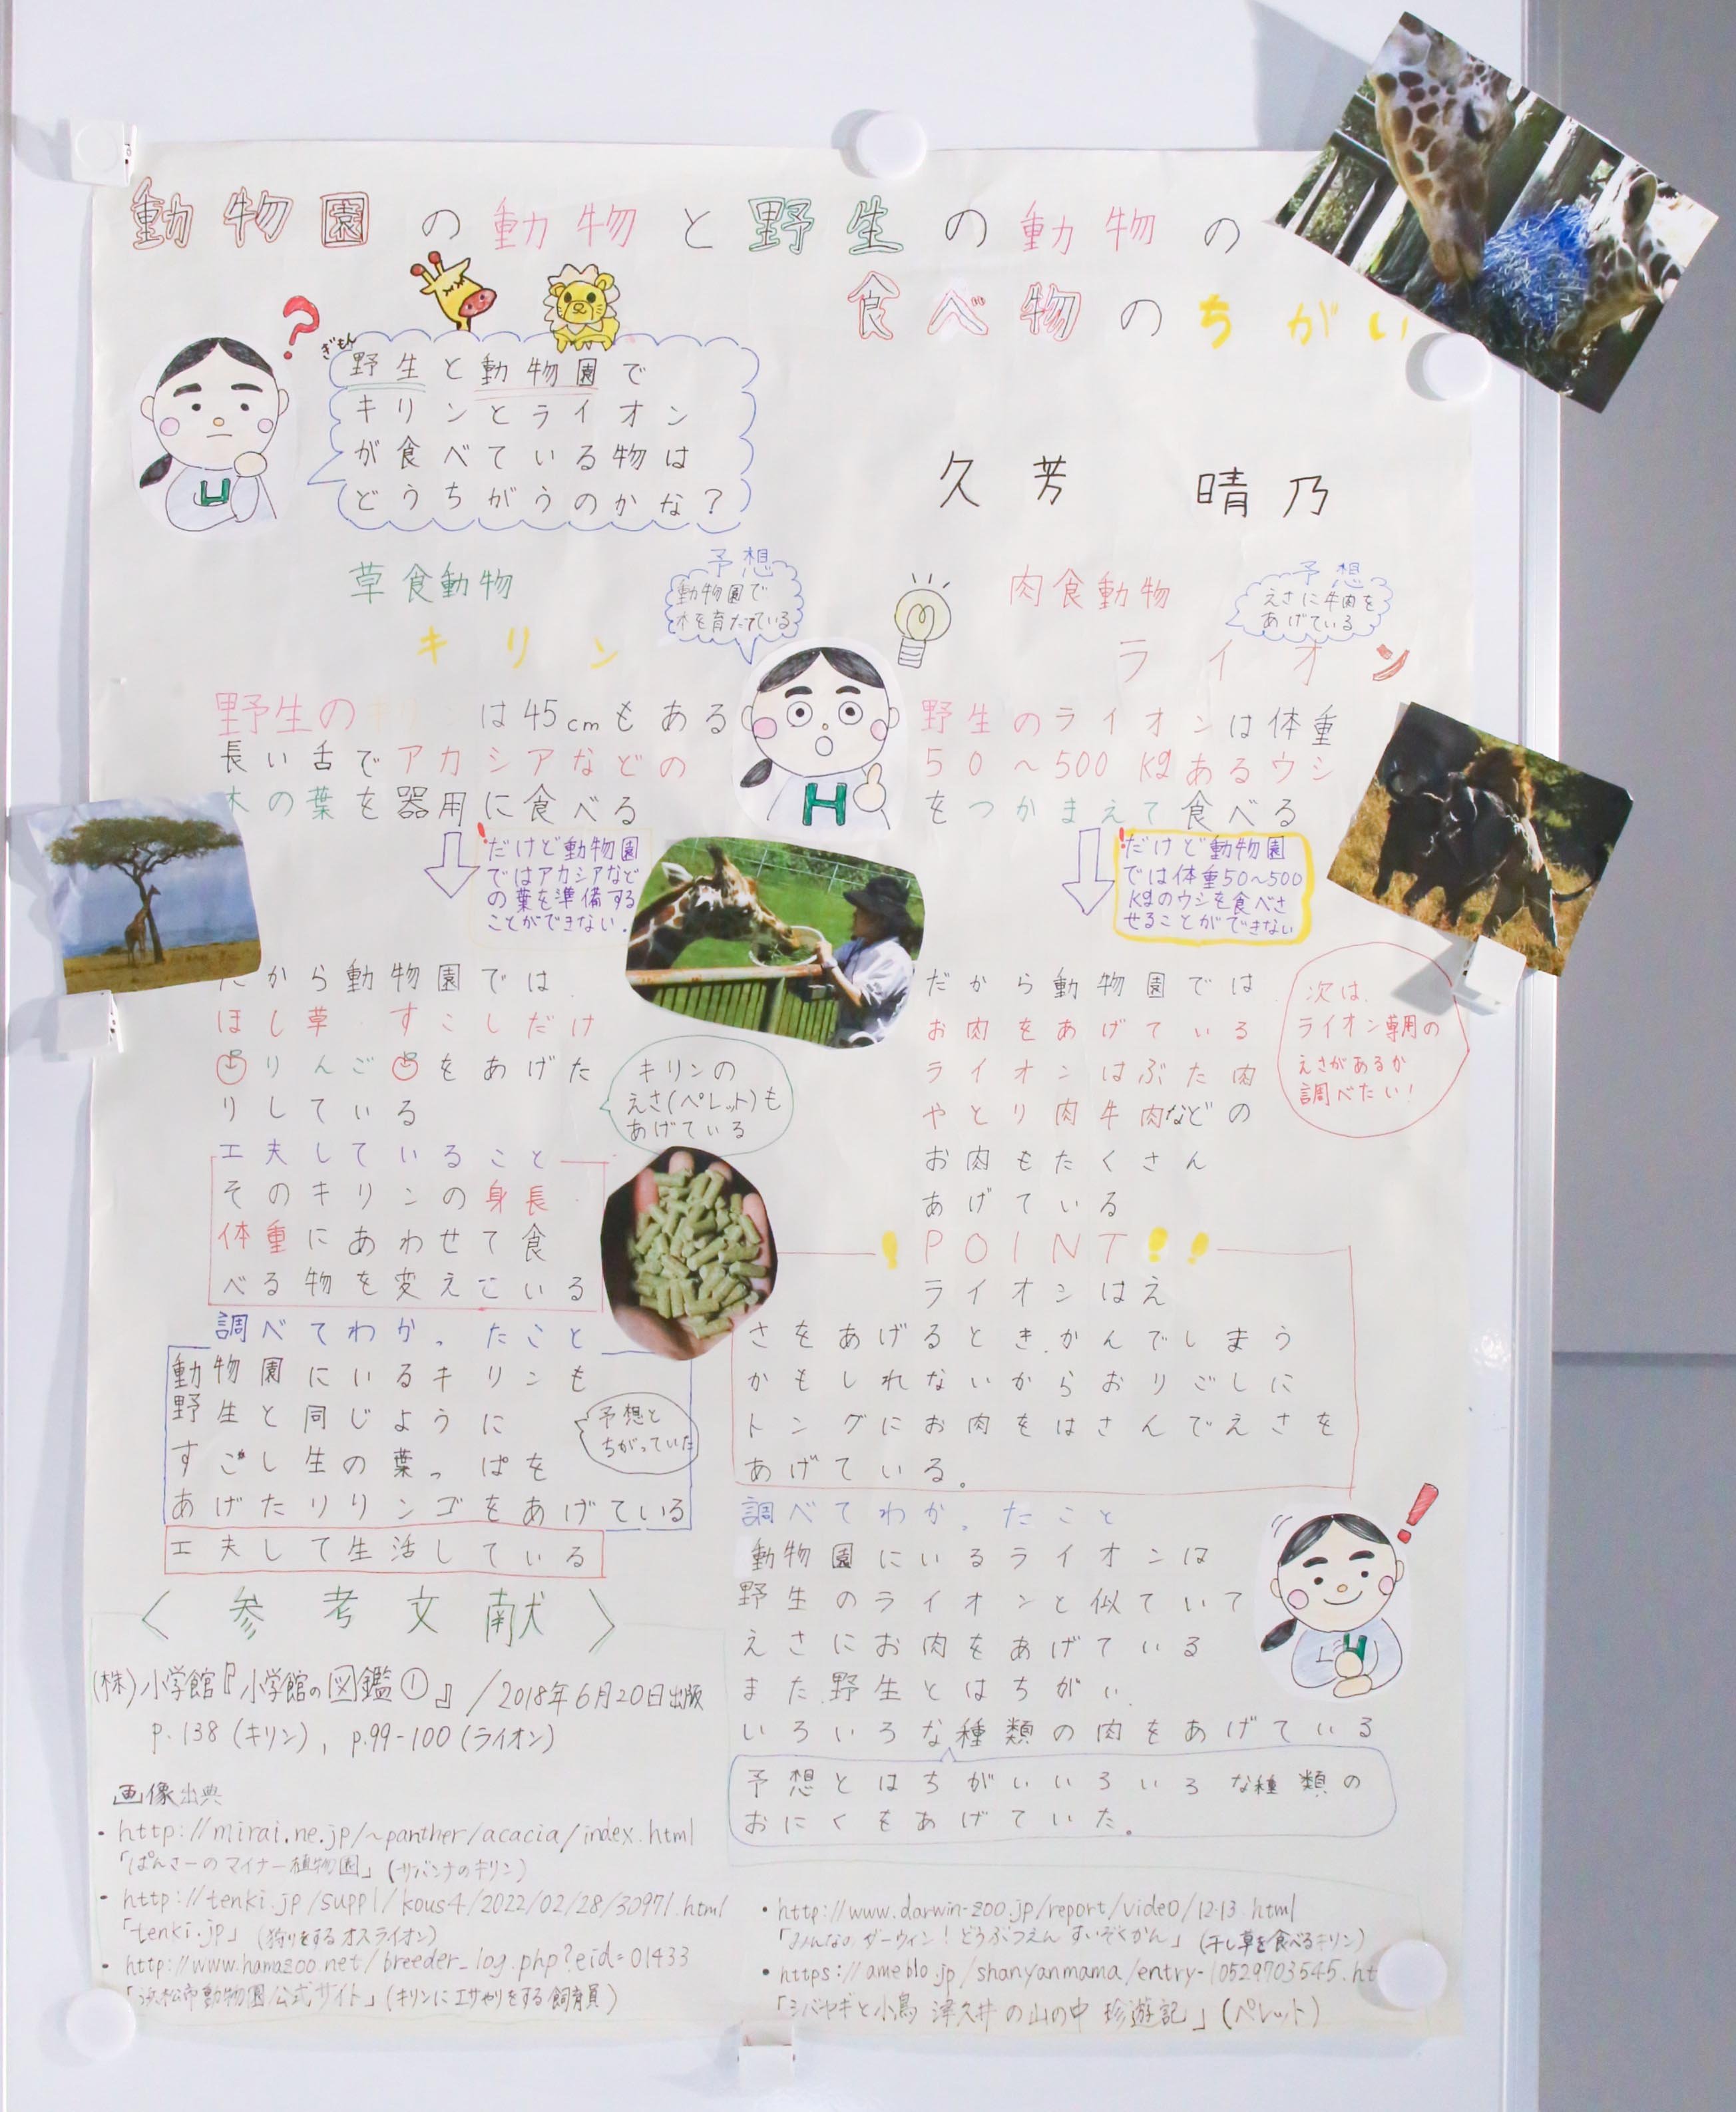 動物園の動物と野生の動物の
食べ物のちがい
ぎもん
野生と動物園で
キリンとライオン
が食べている物は
どうちがうのかな?
久芳 晴乃
草食動物
予想
動物園で
木を育たている
キリン
野生のキリンは45cmもある
長い舌でアカシアなどの
木の葉を器用に食べる
!だけど動物園
ではアカシアなど
の葉を準備する
ことができない.
だから動物園では
ほし草 すこしだけ
りんごをあげた
りしている
キリンの
えさ(ペレット)も
あげている
工夫していること
そのキリンの身長
体重にあわせて食
べる物を変えている
調べてわかったこと
動物園にいるキリンも
野生と同じように
すこし生の葉っぱを
あげたりリンゴをあげている
予想と
ちがっていた
工夫して生活している
肉食動物
予想
えさに牛肉を
あげている
ライオン
野生のライオンは体重
50~500kgあるウシ
をつかまえて食べる
!だけど動物園
では体重50~500
kgのウシを食べさ
せることができない
だから動物園では
お肉をあげている
ライオンはぶた肉
やとり肉牛肉などの
お肉もたくさん
あげている
次は
ライオン専用の
えさがあるか
調べたい!
!POINT!!
ライオンはえ
さをあげるときかんでしまう
かもしれないからおりごしに
トングにお肉をはさんでえさを
あげている。
調べてわかったこと
動物園にいるライオンは
野生のライオンと似ていて
えさにお肉をあげている
また野生とはちがい
いろいろな種類の肉をあげている
予想とはちがいいろいろな種類の
おにくをあげていた。
〈参考文献〉
(株)小学館『小学館の図鑑①』/2018年6月20日出版
p.138(キリン), p.99-100(ライオン)
画像出典
・http://mirai.ne.jp/~panther/acacia/index.html
「ぱんさーのマイナー植物園」(サバンナのキリン)
・http://tenki.jp/suppl/kous4/2022/02/28/30971.html
「tenki.jp」(狩りをするオスライオン)
・http://www.hamazoo.net/breeder_log.php?eid=01433
「浜松市動物園公式サイト」(キリンにエサやりをする飼育員)
・http://www.darwin-zoo.jp/report/video/1213.html
「みんなのダーウィン!どうぶつえんすいぞくかん」(干し草を食べるキリン)
・https://ameblo.jp/shanyanmama/entry-10529703545.ht
「シバヤギと小鳥 津久井の山の中 珍遊記」(ペレット)